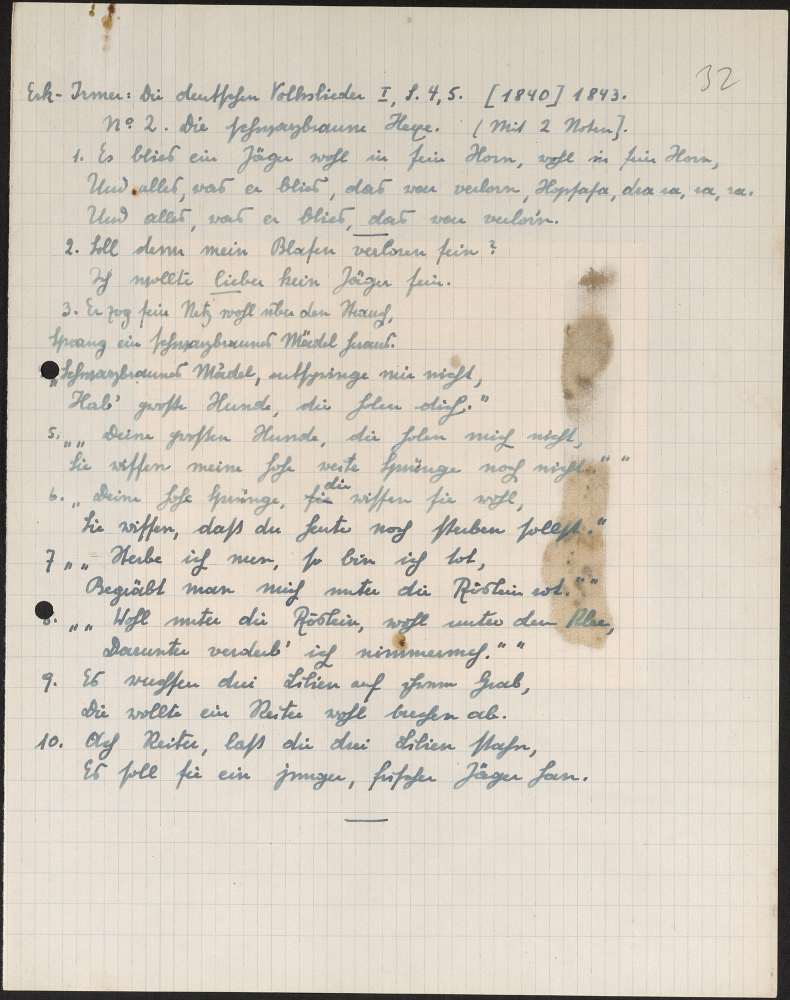 32
Erk-Irmer: Die deutschen Volkslieder I, S. 4, 5. [1840] 1843.
No 2. Die schwarzbraune Hexe. (Mit 2 Noten].
1. Es blies ein Jäger wohl in sein Horn, wohl in sein Horn,
Und alles, was er blies, das war verlorn, Hopsasa, dra ra, ra, ra.
Und alles, was er blies, das war verlorn.
2. Soll denn mein Blasen verloren sein?
Ich wollte lieber kein Jäger sein.
3. Er zog sein Netz wohl über den Strauch,
Sprang ein schwarzbraunes Mädel heraus.
„Schwarzbraunes Mädel, entspringe mir nicht,
Hab' große Hunde, die holen dich."
5. „„ Deine großen Hunde, die holen mich nicht,
Sie wissen meine hohe weite Sprünge noch nicht." "
6. „ Deine hohe Sprünge, die wissen sie wohl,
Sie wissen, daß du heute noch sterben sollst."
7 „„ Sterbe ich nun, so bin ich tot,
Begräbt man mich unter die Röslein rot." "
8. „„ Wohl unter die Röslein, wohl unter den Klee,
Darunter verderb' ich nimmermeh." "
9. Es wuchsen drei Lilien auf ihrem Grab,
Die wollte ein Reiter wohl brechen ab.
10. Ach Reiter, laß die drei Lilien stahn,
Es soll sie ein junger, frischer Jäger han.